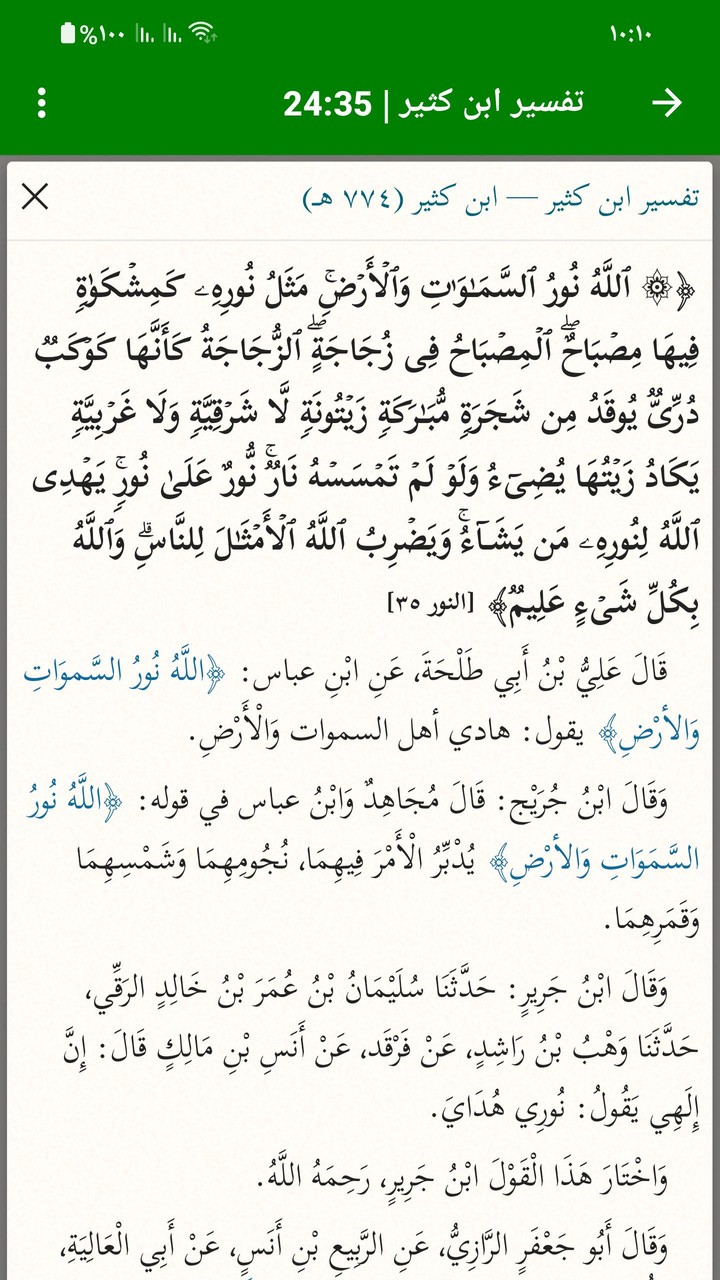 ١٠:١٠
%١٠٠
تفسير ابن كثير | 24:35
تفسير ابن كثير — ابن كثير (٧٧٤ هـ)
﴿۞ ٱللَّهُ نُورُ ٱلسَّمَـٰوَ ٰ⁠تِ وَٱلۡأَرۡضِۚ مَثَلُ نُورِهِۦ كَمِشۡكَوٰةࣲ
فِیهَا مِصۡبَاحٌۖ ٱلۡمِصۡبَاحُ فِی زُجَاجَةٍۖ ٱلزُّجَاجَةُ كَأَنَّهَا كَوۡكَبࣱ
دُرِّیࣱّ یُوقَدُ مِن شَجَرَةࣲ مُّبَـٰرَكَةࣲ زَیۡتُونَةࣲ لَّا شَرۡقِیَّةࣲ وَلَا غَرۡبِیَّةࣲ
یَكَادُ زَیۡتُهَا یُضِیۤءُ وَلَوۡ لَمۡ تَمۡسَسۡهُ نَارࣱۚ نُّورٌ عَلَىٰ نُورࣲۚ یَهۡدِی
ٱللَّهُ لِنُورِهِۦ مَن یَشَاۤءُۚ وَیَضۡرِبُ ٱللَّهُ ٱلۡأَمۡثَـٰلَ لِلنَّاسِۗ وَٱللَّهُ
بِكُلِّ شَیۡءٍ عَلِیمࣱ﴾ [النور ٣٥]
قَالَ عَلِيُّ بْنُ أَبِي طَلْحَةَ، عَنِ ابْنِ عباس: ﴿اللَّهُ نُورُ السَّموَاتِ
وَالأرْضِ﴾ يقول: هادي أهل السموات وَالْأَرْضِ.
وَقَالَ ابْنُ جُرَيْج: قَالَ مُجَاهِدٌ وَابْنُ عباس في قوله: ﴿اللَّهُ نُورُ
السَّمَوَاتِ وَالأرْضِ﴾ يُدْبِّرُ الْأَمْرَ فِيهِمَا، نُجُومِهِمَا وَشَمْسِهِمَا
وَقَمَرِهِمَا.
وَقَالَ ابْنُ جَرِيرٍ: حَدَّثَنَا سُلَيْمَانُ بْنُ عُمَرَ بْنُ خَالِدٍ الرَقِّي،
حَدَّثَنَا وَهْبُ بْنُ رَاشِدٍ، عَنْ فَرْقَد، عَنْ أَنَسِ بْنِ مَالِكٍ قَالَ: إِنَّ
إِلَهِي يَقُولُ: نُورِي هُدَايَ.
وَاخْتَارَ هَذَا الْقَوْلَ ابْنُ جَرِيرٍ، رَحِمَهُ اللَّهُ.
وَقَالَ أَبُو جَعْفَرٍ الرَّازِيُّ، عَنِ الرَّبِيعِ بْنِ أَنَسٍ، عَنْ أَبِي الْعَالِيَةِ،